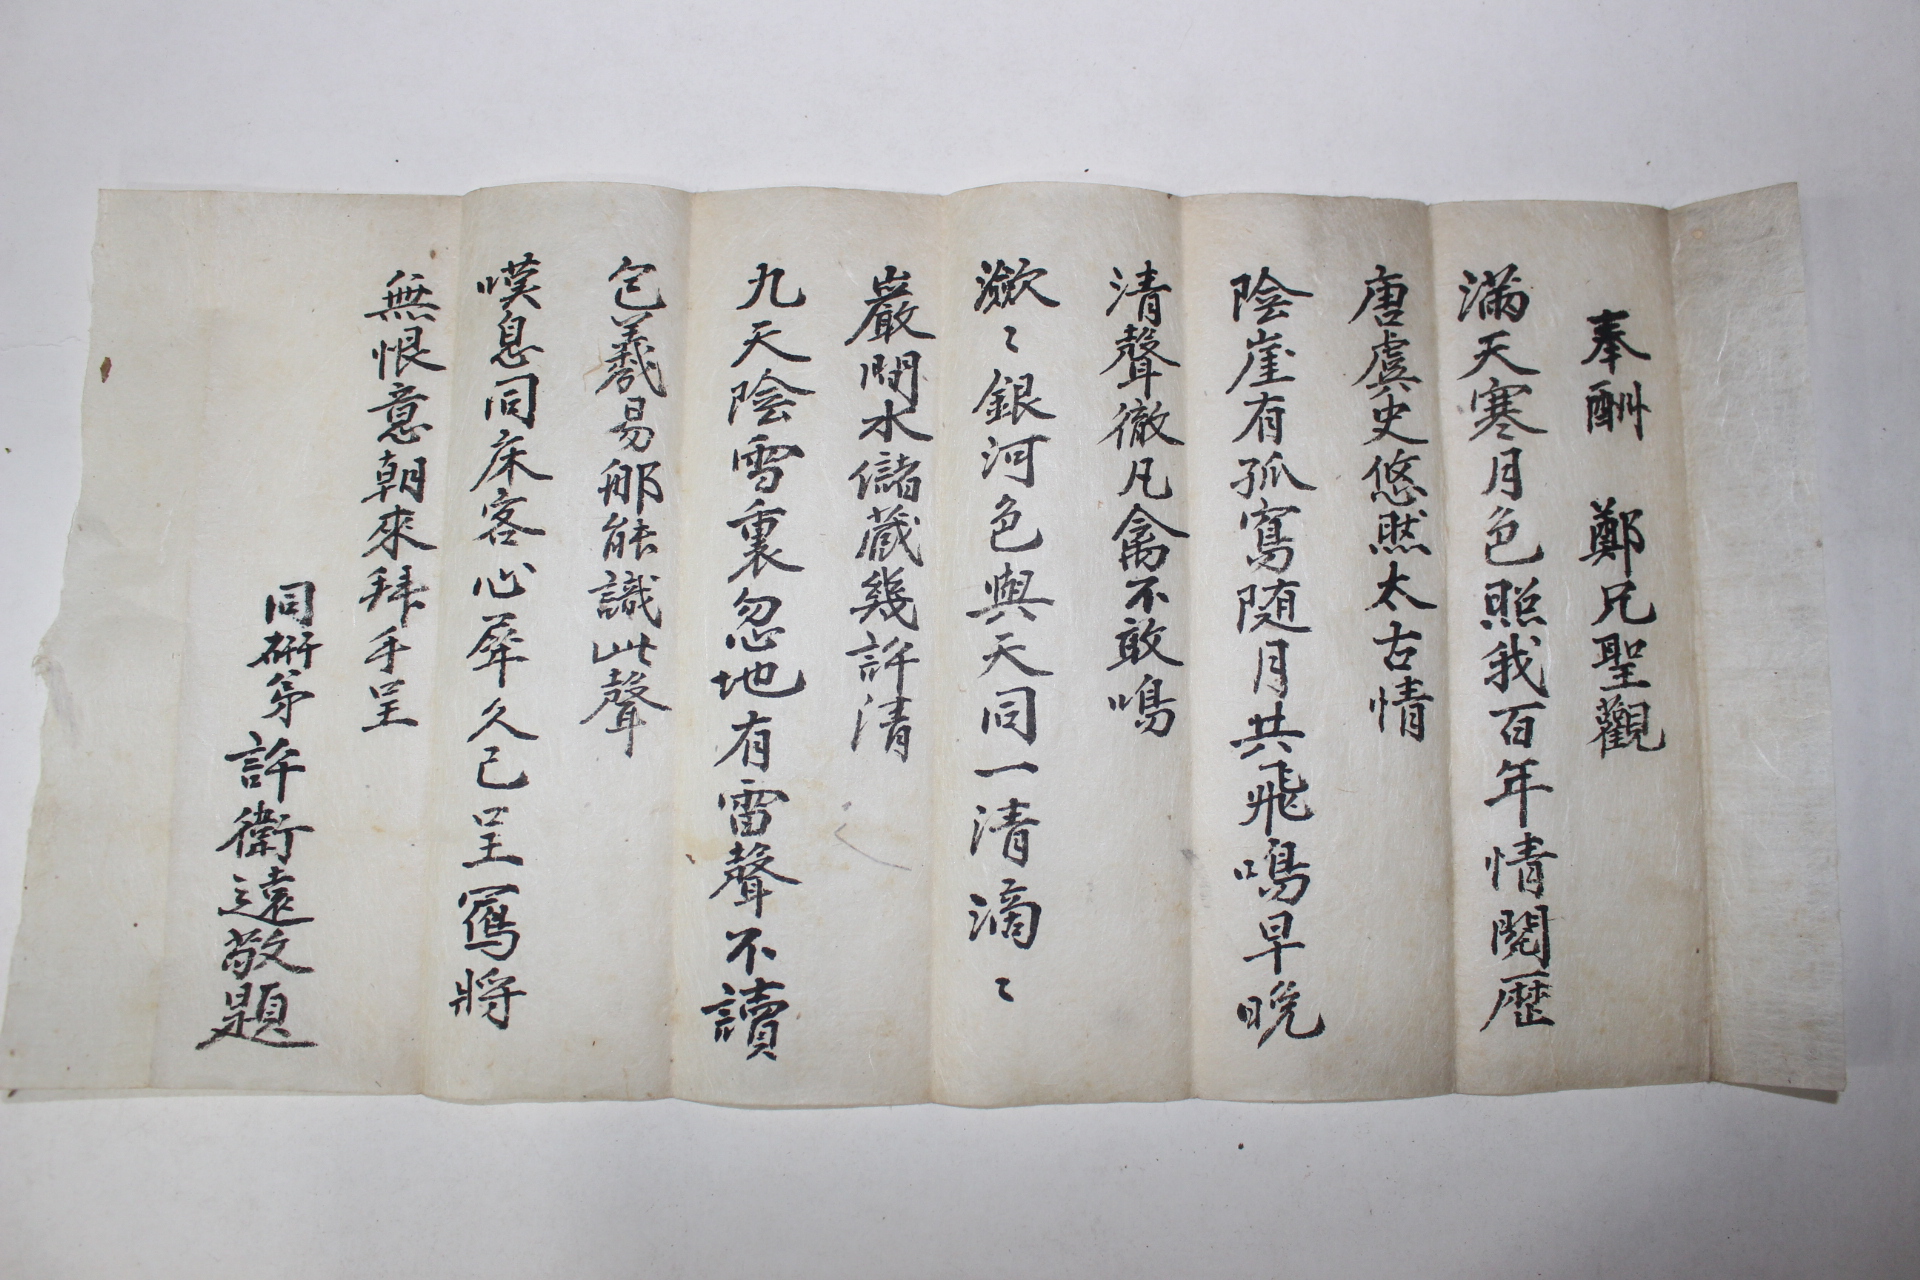 奉酬 鄭兄聖觀
滿天寒月色照我百年情閱歷
唐虞史悠然太古情
陰崖有孤寫随月共飛鳴早晩
清聲徹凡禽不敢鳴
瀲〻銀河色與天同一清滴〻
巖間水儲蔵幾許清
九天陰雪裏忽地有雷聲不讀
包羲易那能識此聲
嘆息同床客心犀久已呈寫將
無恨意朝來拜手呈
同硏弟 許衛遠敬題